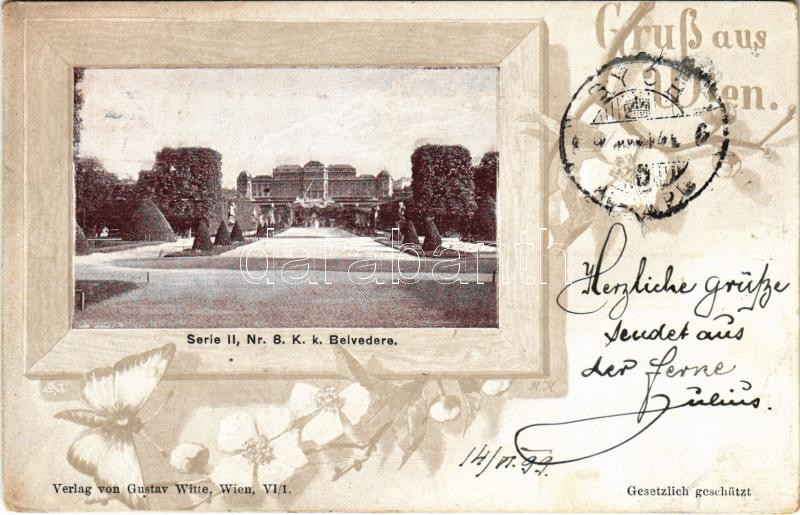 Gruß aus
Wien.
Serie II, Nr. 8. K. k. Belvedere.
darabanth
Herzliche Grüße
sendet aus
der Ferne
Julius.
14/VI. 99
Verlag von Gustav Witte, Wien, VI/1.
Gesetzlich geschützt